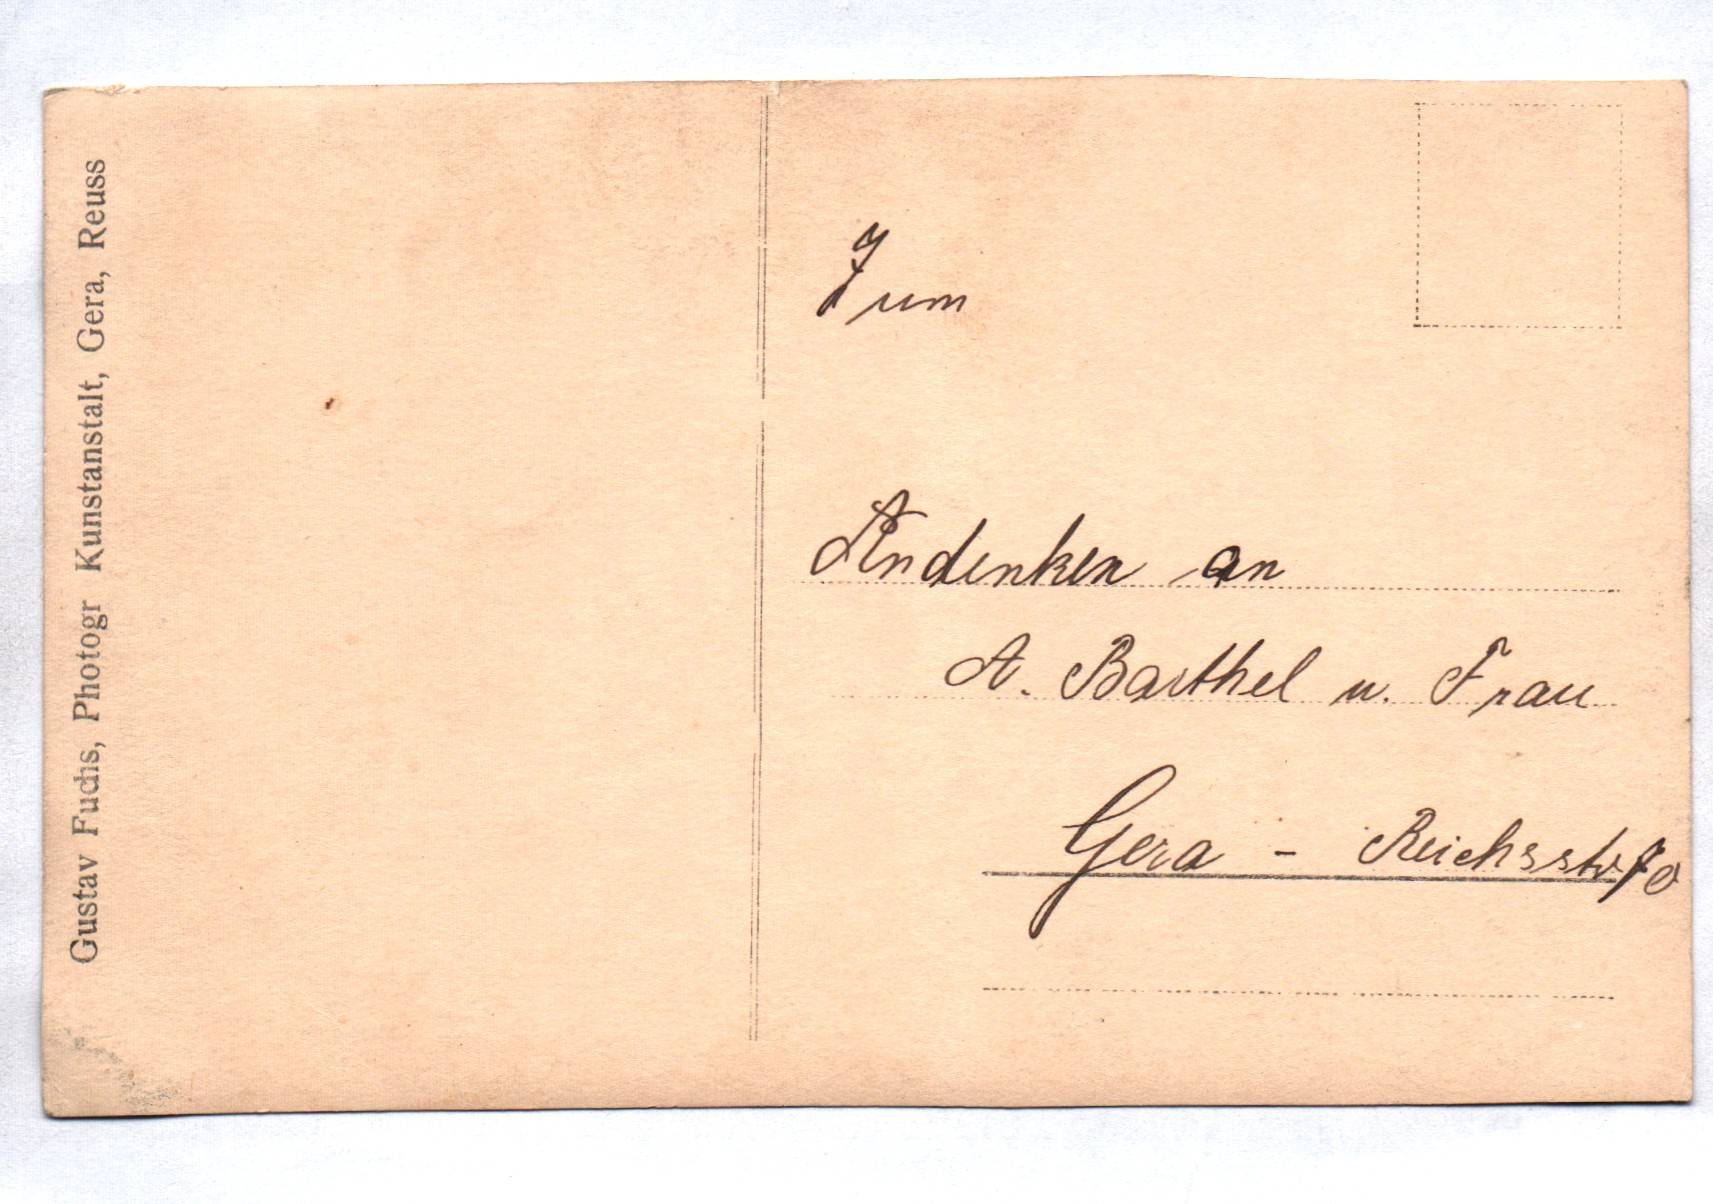 Gustav Fuchs, Photogr Kunstanstalt, Gera, Reuss
Zum
Andenken an
A. Barthel u. Frau
Gera - Reichsstr